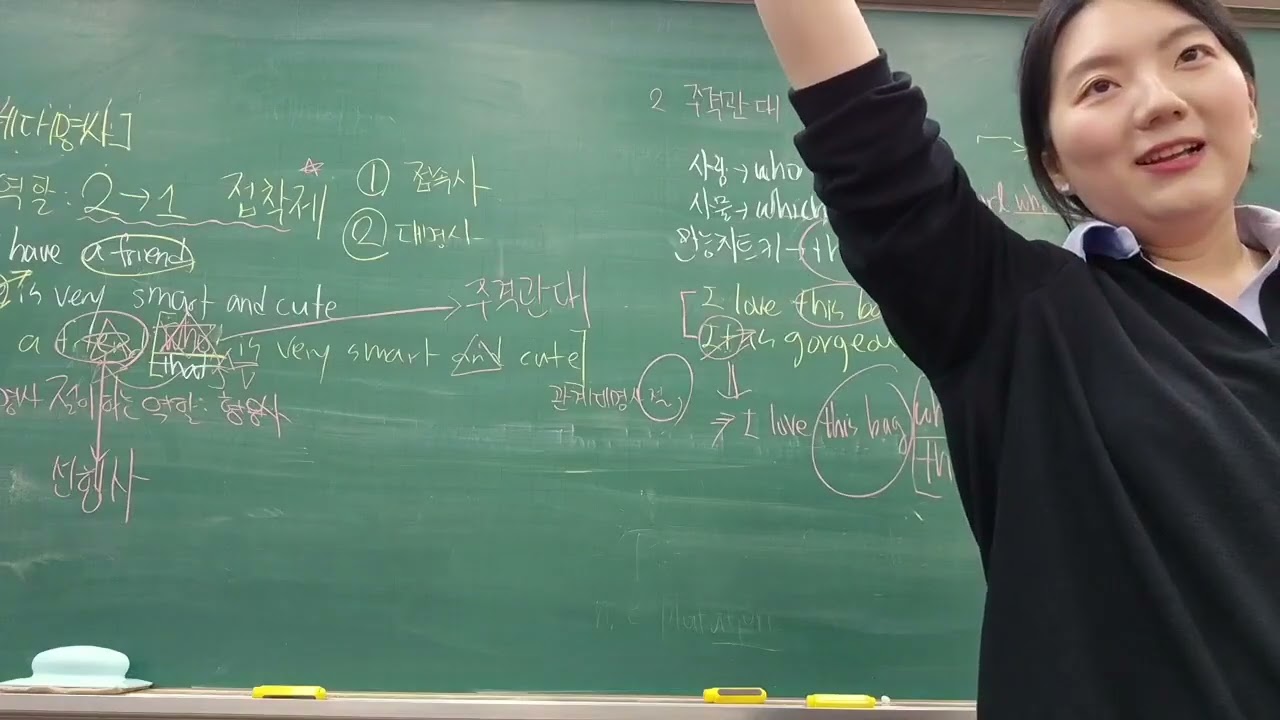 계대명사]
역할: 2→1 접착제 ☆
① 접속사
② 대명사
have a friend
is very smart and cute
→ 주격관대
a friend [who is very smart and cute]
that
V
명사 절이 하는 역할: 형용사
선행사
관계대명사절,
2 주격관대
사람→who
사물→which
만능치트키→th
I love this ba
It is gorgeou
⇒ I love this bag [wh
th